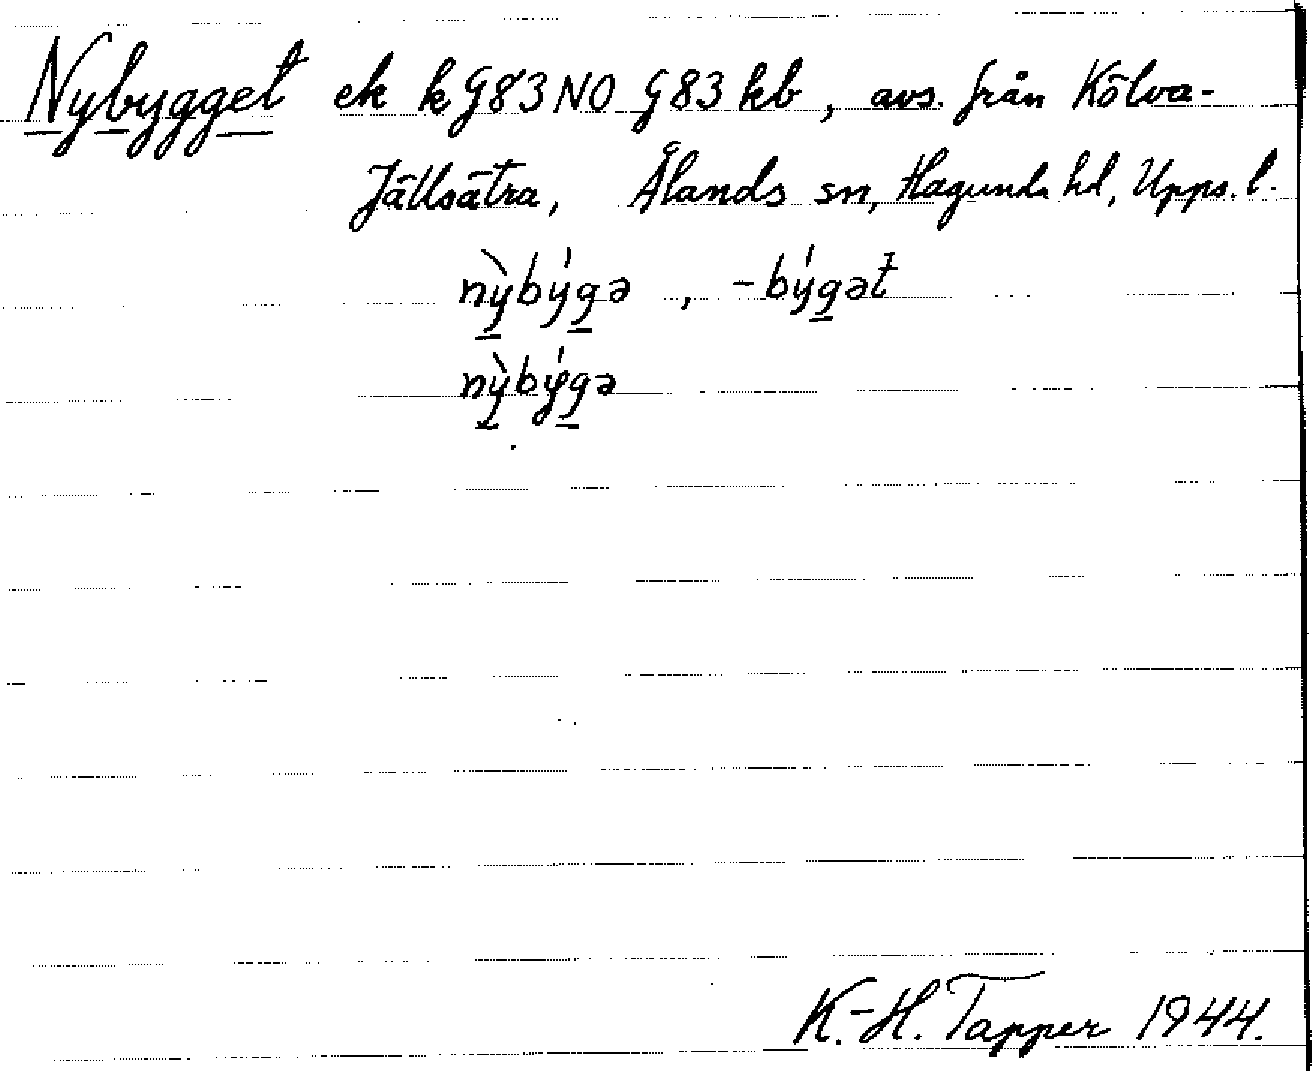 Nybygget ek k G83NO G83 kb, avs. från Kölva-
Jällsätra, Ålands sn, Hagunda hd, Upps. l.
nỳbýgə, -býgət
nỳbýgə
K.-H. Tapper 1944.